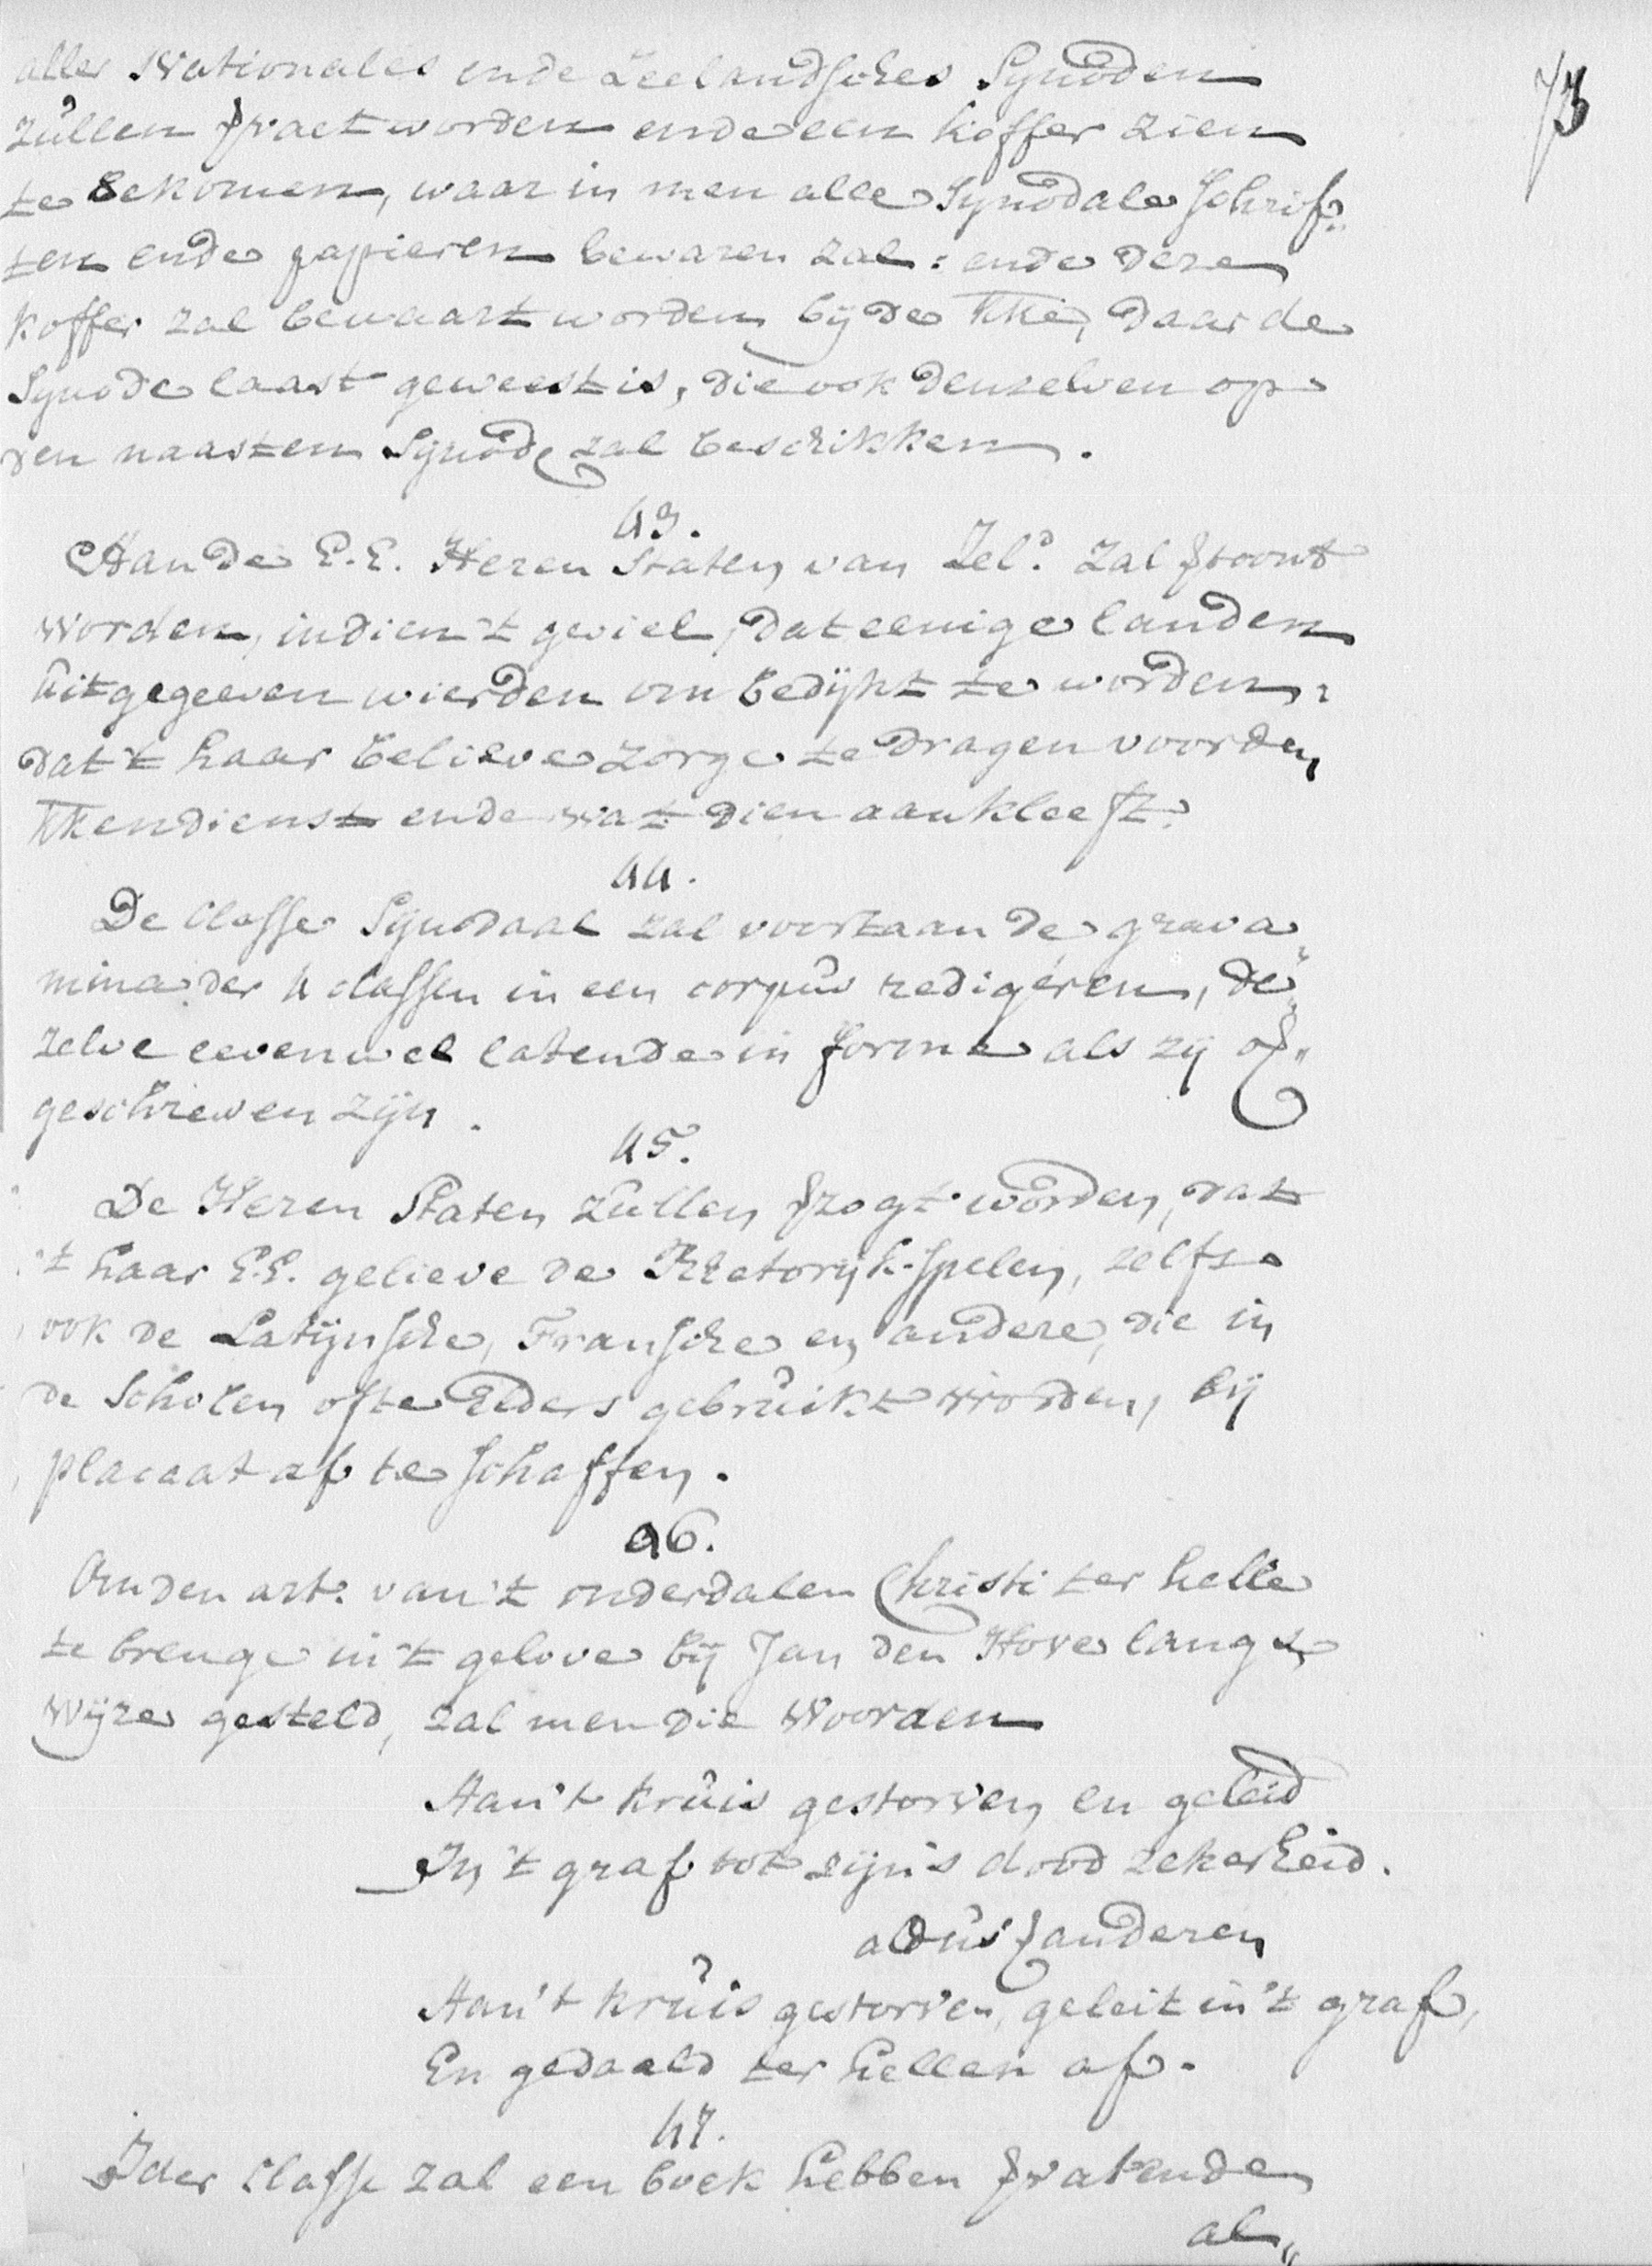 73
aller Nationales ende Zeelandsches Synoden
zullen ꝟvaet worden ende een koffer zien
te bekomen, waar in men alle Synodale schrif„
ten ende papieren bewaren zal: ende deze
koffer zal bewaart worden bij de kke, daar de
Synode laast geweest is, die ook denzelven op
den naasten Synode zal beschikken.
43.
Aan de E.E. Heren Staten van Zeld. zal ꝟtoont
worden, indien 't geviel, dat eenige landen
uitgegeeven wierden om bedijkt te worden:
dat 't haar believe zorge te dragen voor den
kkendienst ende wat dien aankleeft.
44.
De Classe Synodaal zal voortaan de grava„
mina der 4 classen in een corpus redigeren, de„
zelve eevenwel latende in forme als zij op„
geschreven zijn.
45.
De Heren Staten zullen ꝟzogt worden, dat
't haar E.E. gelieve de Rhetorijk-spelen, zelfs
ook de Latijnsche, Fransche en andere, die in
de Scholen ofte elders gebruikt worden, bij
placaat af te schaffen.
46.
Om den art. van 't onderdalen Christi ter helle
te brenge in 't gelove bij Jan den Hove langs
wijze gesteld, zal men die woorden
Aan 't kruis gestorven en geleid
In 't graf tot zijns dood zekerheid.
aldus ꝟanderen
Aan 't kruis gestorven, geleit in 't graf,
En gedaald ter hellen af.
47.
Ider Classe zal een boek hebben ꝟvatende
al„